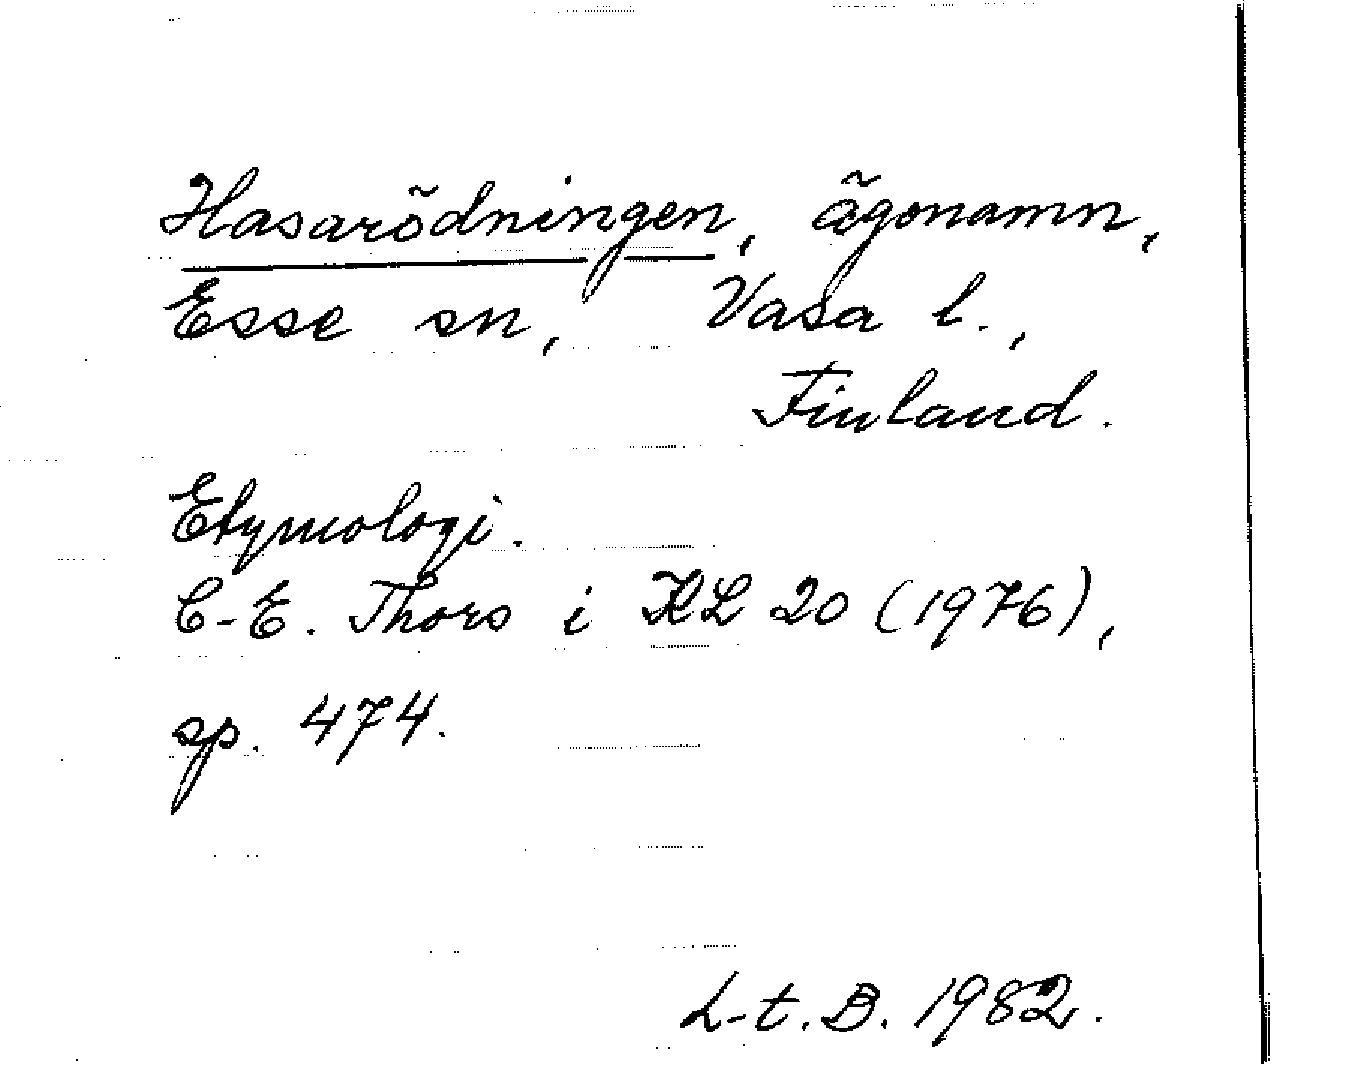 Hasarödningen, ägonamn,
Esse sn, Vasa l.,
Finland.
Etymologi.
C-E. Thors i KL 20 (1976),
sp. 474.
L-t. B. 1982.